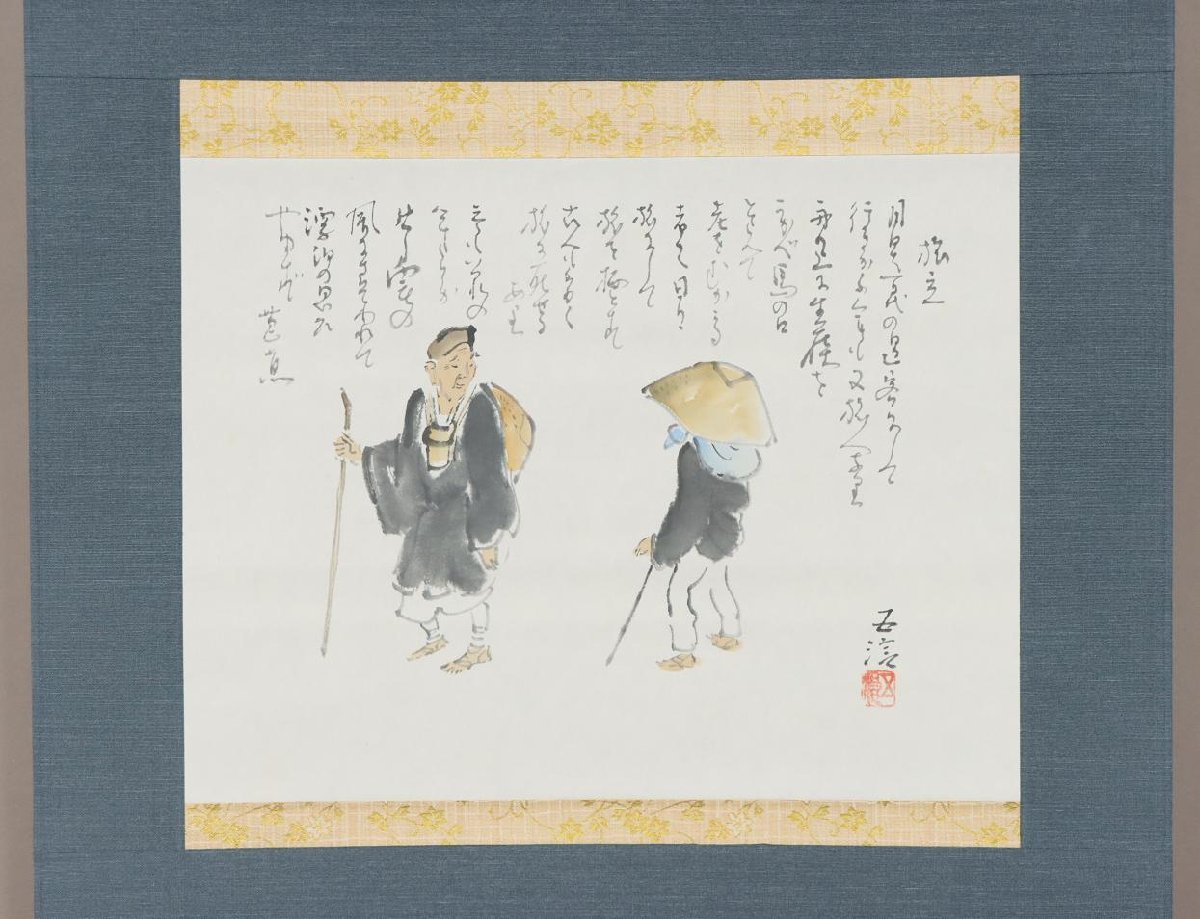 旅立
月日は百代の過客にして
行かふ年も又旅人也
舟の上に生涯を
うかべ馬の口
とらえて
老をむかふる
者は日々
旅にして
旅を栖とす
古人も多く
旅に死せる
あり
予もいづれの
年よりか
片雲の
風にさそはれて
漂泊の思ひ
やまず
芭蕉
五淳